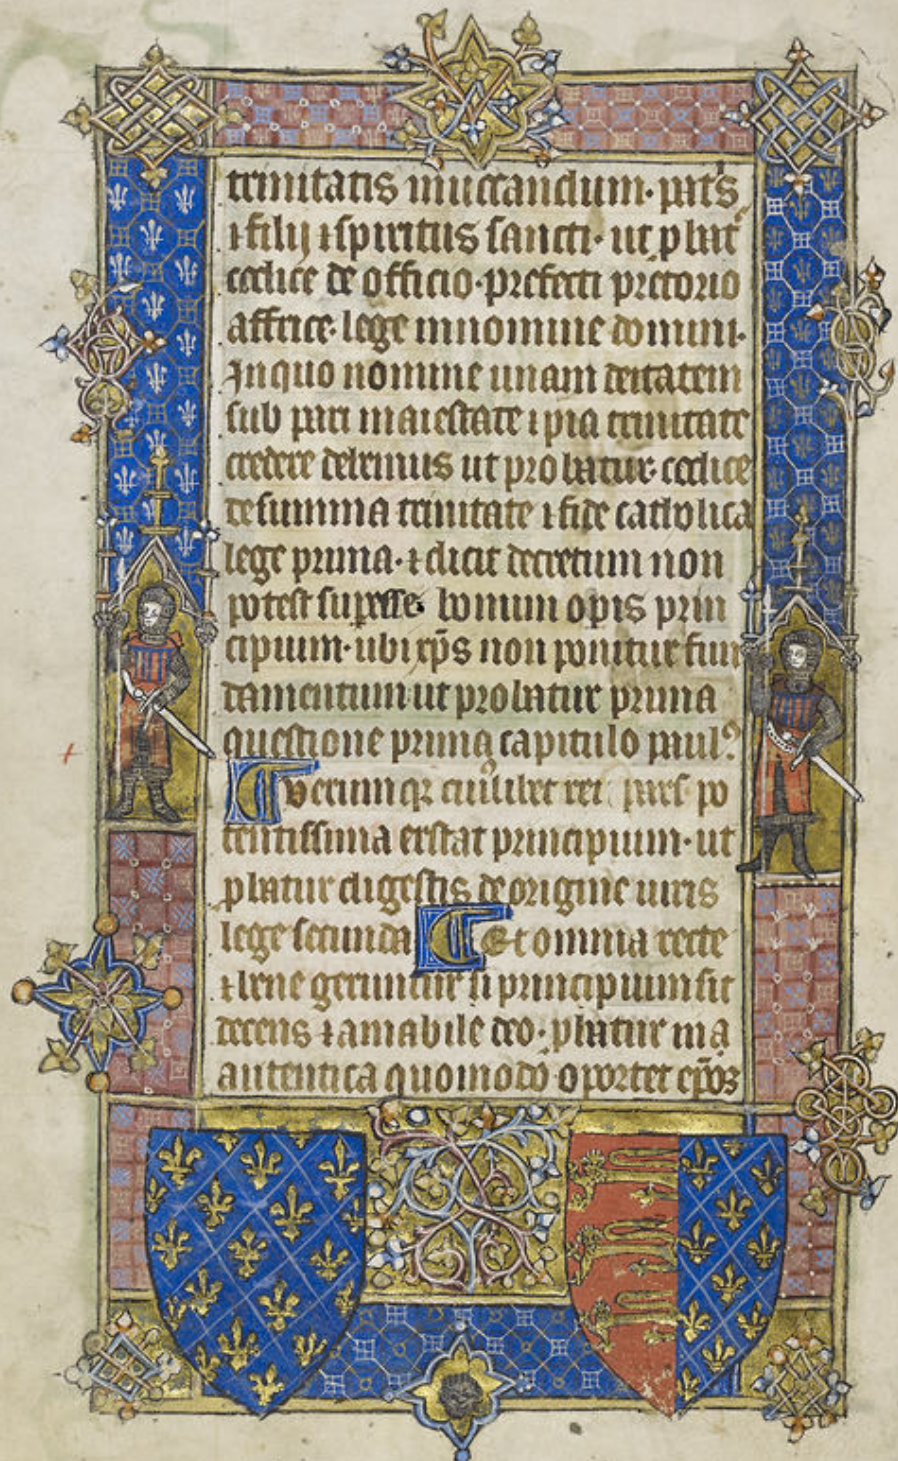 trinitatis inuocandum · pat's
⁊ filij ⁊ spiritus sancti · ut ꝓbat᷑
codice de officio · prefecti pretorio
affrice · lege in nomine domini ·
In quo nomine unam deitatem
sub pari maiestate ⁊ pia trinitate
credere debemus ut probatur · codice
de summa trinitate ⁊ fide catholica
lege prima · ⁊ dicit decretum non
potest supesse bonum opis prin
cipium · ubi xp̄s non ponitur fun
damentum ut probatur prima
questione prima capitulo paul'
Uerum qꝫ cuiuslibet rei pars po
tentissima extat principium · ut
ꝓbatur digestis de origine iuris
lege secunda Et omnia recte
⁊ bene geruntur si principium sit
decens ⁊ amabile deo · ꝓbatur in a
autentica quomodo oportet ep̄os